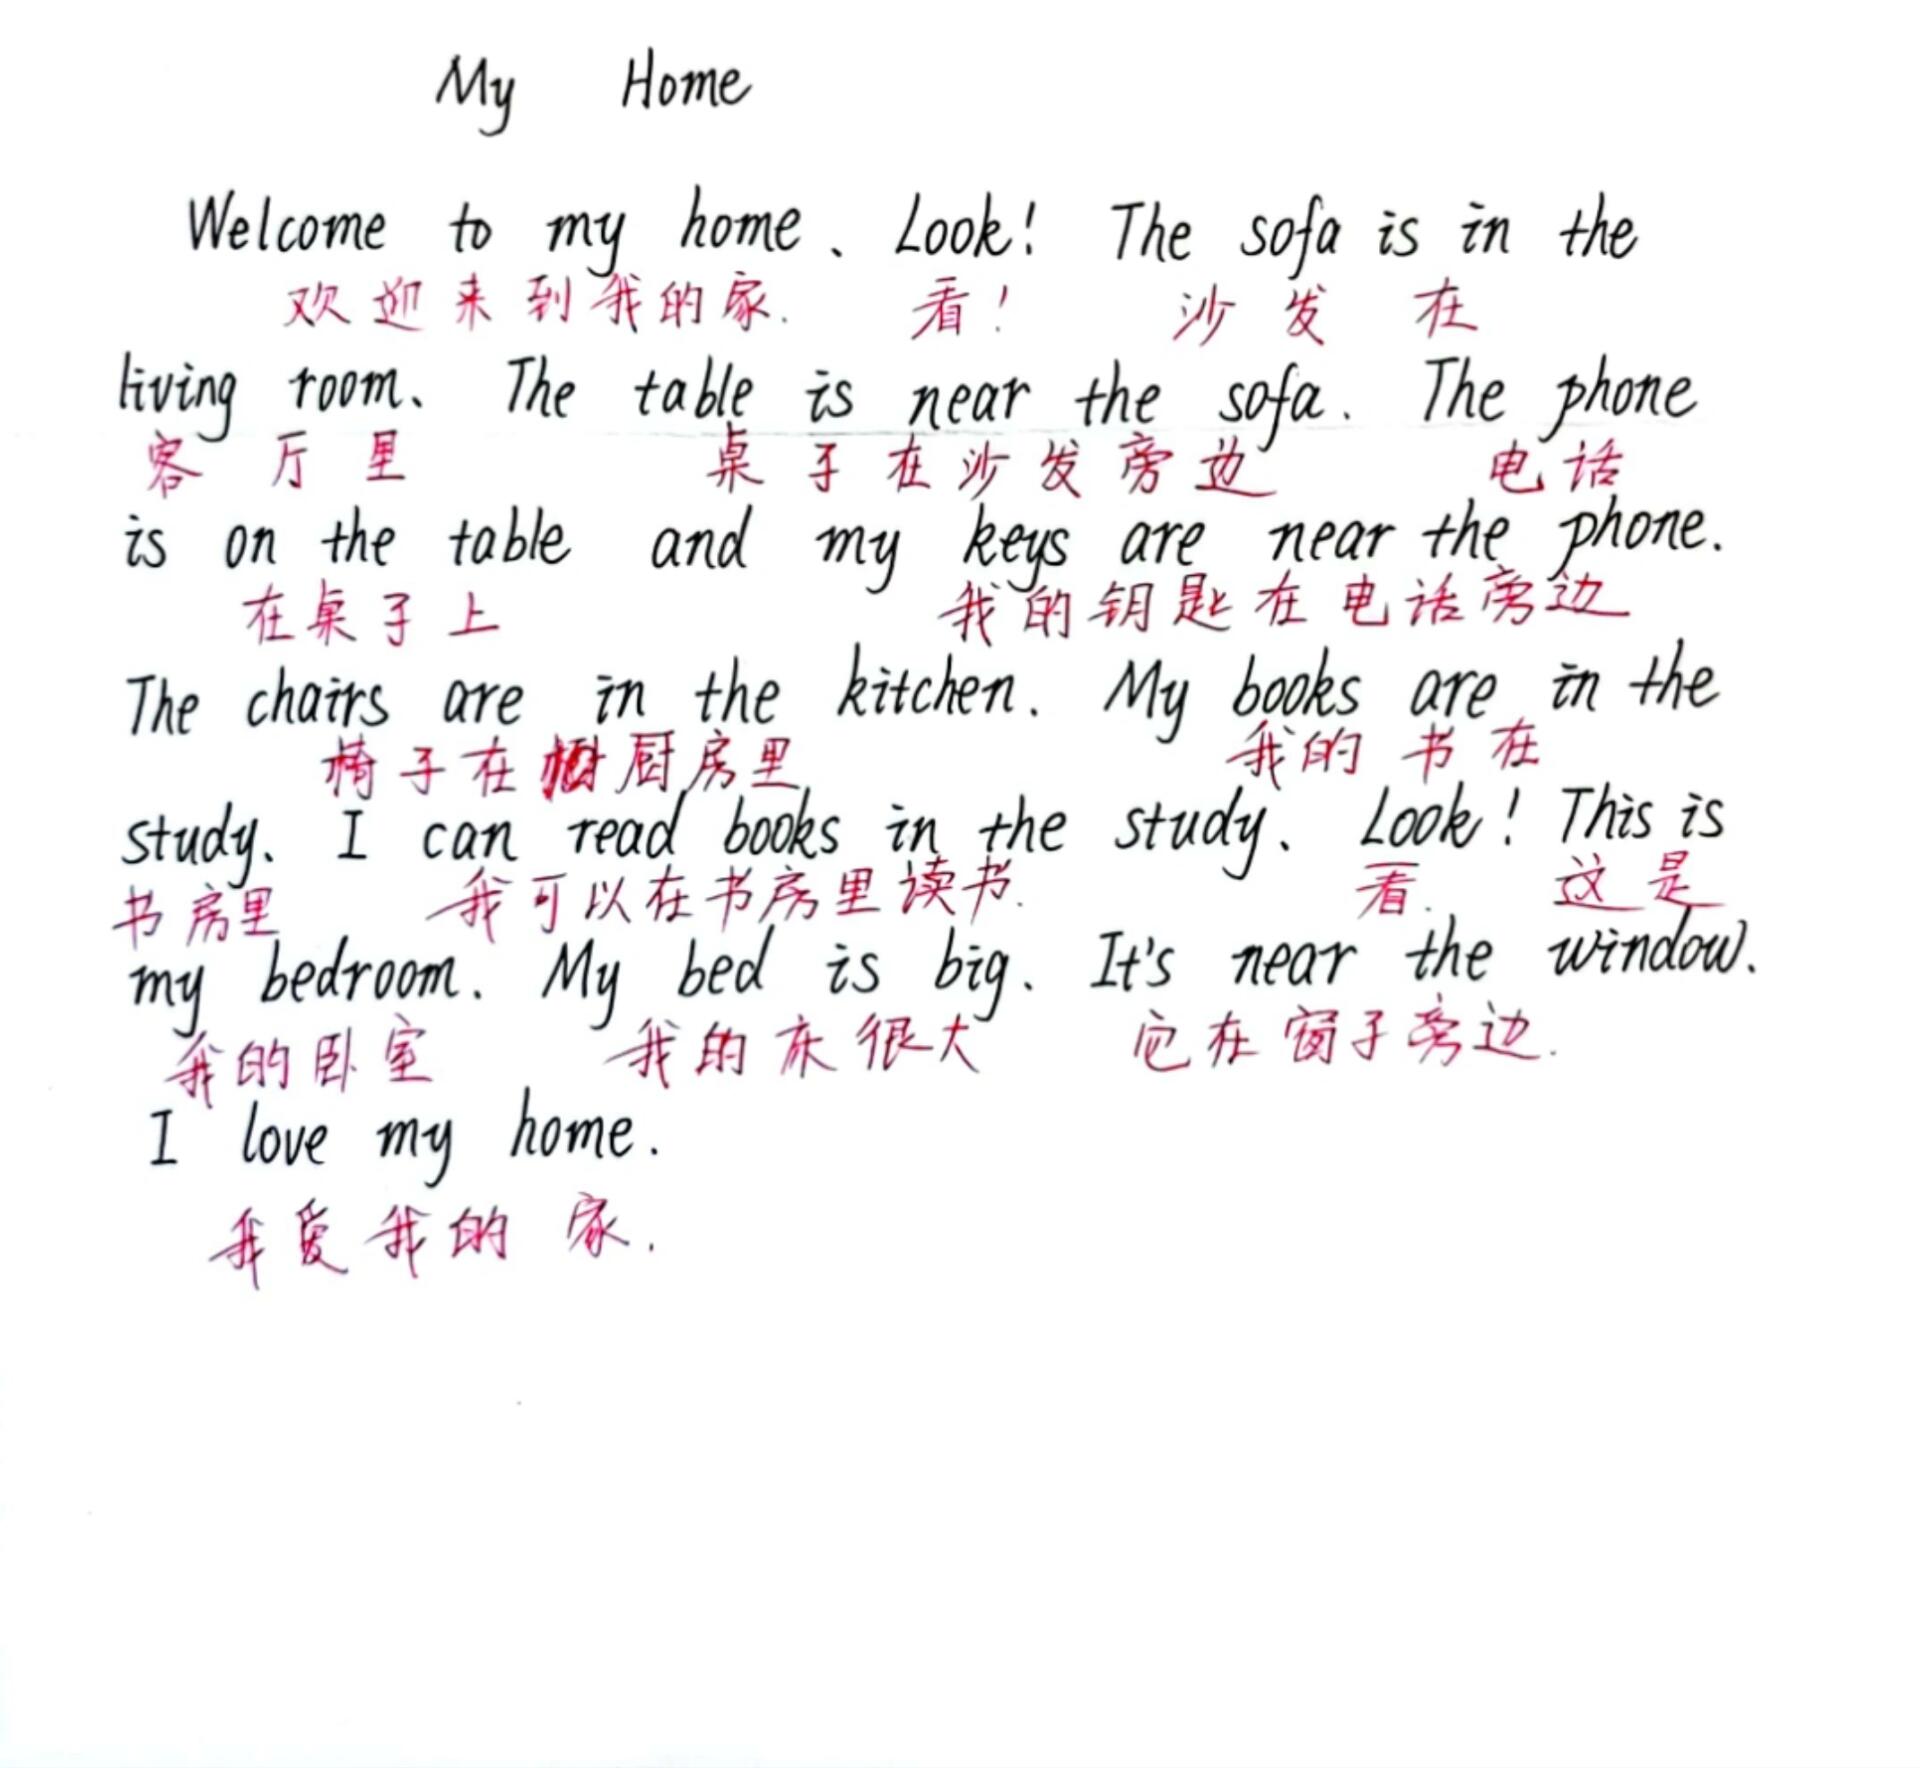 My Home
Welcome to my home. Look! The sofa is in the
欢迎来到我的家. 看! 沙发在
living room. The table is near the sofa. The phone
客厅里 桌子在沙发旁边 电话
is on the table and my keys are near the phone.
在桌子上 我的钥匙在电话旁边
The chairs are in the kitchen. My books are in the
椅子在厨房里 我的书在
study. I can read books in the study. Look! This is
书房里 我可以在书房里读书. 看. 这是
my bedroom. My bed is big. It's near the window.
我的卧室 我的床很大 它在窗子旁边.
I love my home.
我爱我的家.